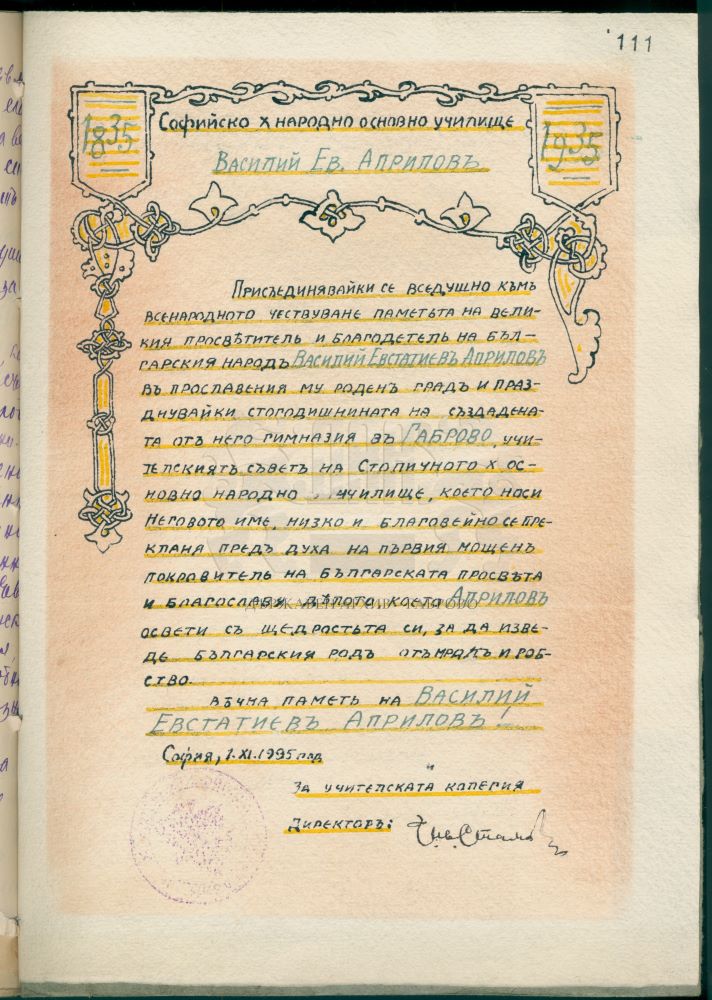 111
1835
1935
Софийско X народно основно училище
Василий Ев. Априловъ
Присъединявайки се вседушно къмъ
всенародното чествуване паметьта на вели-
кия просвѣтитель и благодетель на бъл-
гарския народъ Василий Евстатиевъ Априловъ
въ прославения му роденъ градъ и праз-
днувайки стогодишнината на създадена-
та отъ него гимназия въ Габрово, учи-
телскиятъ съветъ на Столичното X ос-
новно народно училище, което носи
Неговото име, низко и благовейно се пре-
клана предъ духа на първия мощенъ
покровитель на българската просвѣта
и благославя дѣлото, което Априловъ
ДЪРЖАВЕН АРХИВ - ГАБРОВО
освети съ щедростьта си, за да изве-
де българския родъ отъ мракъ и роб-
ство.
Вѣчна паметь на Василий
Евстатиевъ Априловъ!
София, 1.XI.1995 год
За учителската колегия
Директоръ: